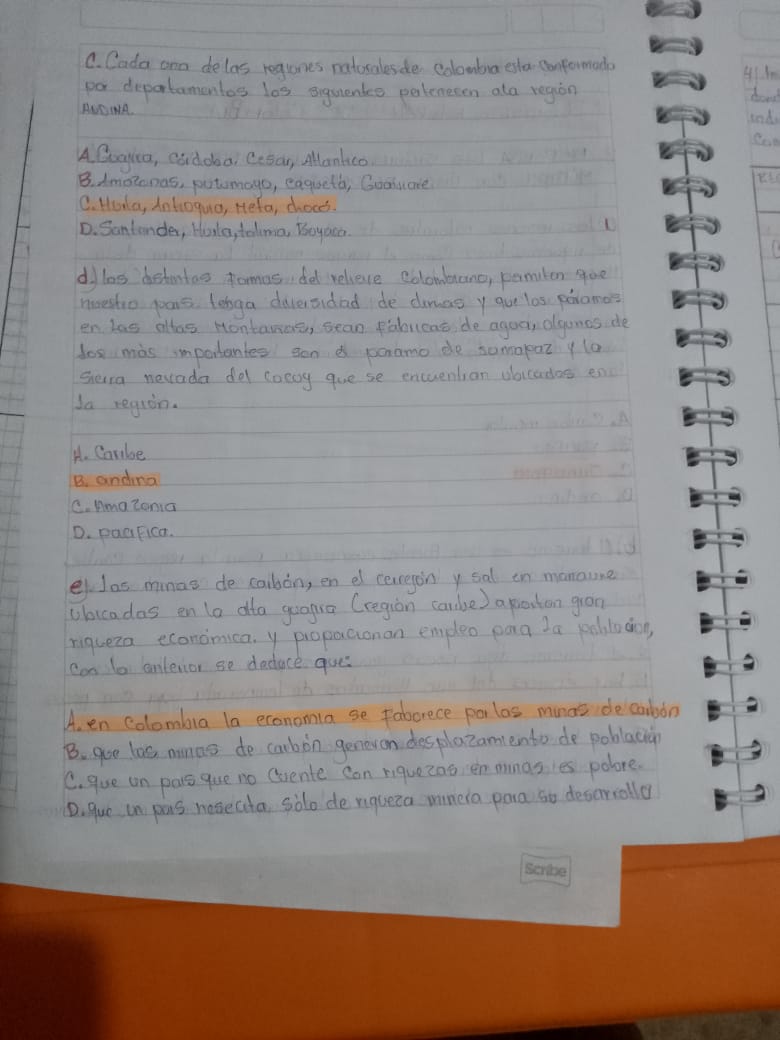 C. Cada una de las regiones naturales de Colombia esta conformado
por departamentos los siguientes pertenecen a la región
ANDINA
A. Guajira, Córdoba, Cesar, Atlantico
B. Amazonas, putumayo, caquetá, Guainare
C. Huila, Antioquia, Meta, chocó.
D. Santander, Huila, tolima, Boyaca.
d) las distintas formas del relieve Colombiano, permiten que
nuestro pais tenga diversidad de climas y que los páramos
en las altas Montañas, sean fabricas de agua, algunos de
los más importantes son el paramo de sumapaz y la
Sierra nevada del Cocoy que se encuentran ubicados en
la región.
A. Caribe
B. andina
C. Amazonia
D. pacifica.
e) las minas de carbón, en el cerrejón y sal en manaure
Ubicadas en la alta guajira (región caribe) aportan gran
riqueza económica. y proporcionan empleo para la población,
con lo anterior se deduce que:
A. en Colombia la economia se faborece por las minas de carbón
B. que las minas de carbón generan desplazamiento de población
C. que un pais que no cuente con riquezas en minas es pobre.
D. que un pais nesecita sólo de riqueza minera para su desarrollo
Scribe